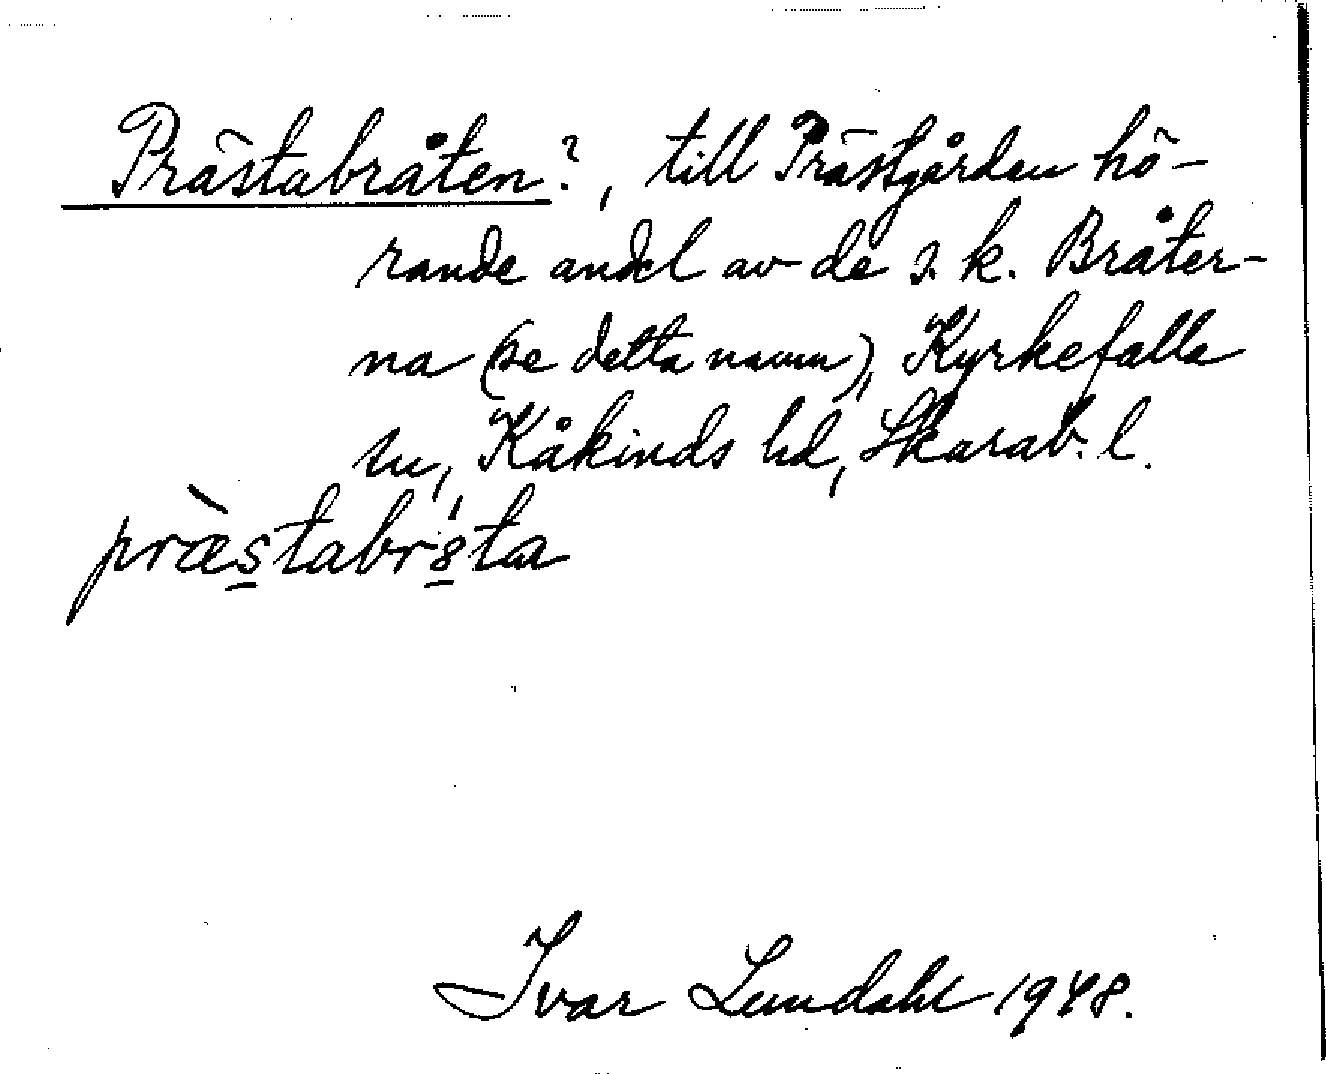 Prästabråten?, till Prästgården hö-
rande andel av de s.k. Bråter-
na (se detta namn), Kyrkefalla
sn, Kåkinds hd, Skarab. l.
præ̀stabr8́ta
Ivar Lundahl 1948.